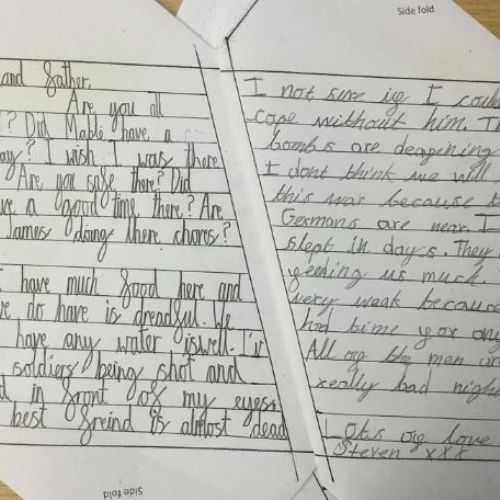 Side fold
and father.
Are you all
? Did Mable have a
ay? I wish I was there
Are you safe there? Did
a good time there? Are
James doing there chores?
have much food here and
do have is dreadful. We
have any water aswell. I'v
soldiers being shot and
in front of my eyes.
best freind is almost dead
I not sure if I could
cope without him. Th
bombs are deafening
I dont think we will
this war because t
Germans are near. I
slept in days. They
feeding us much.
very weak because
had time for any
All of the men
really bad nigh
Lots of love
Steven xxx
Side fold